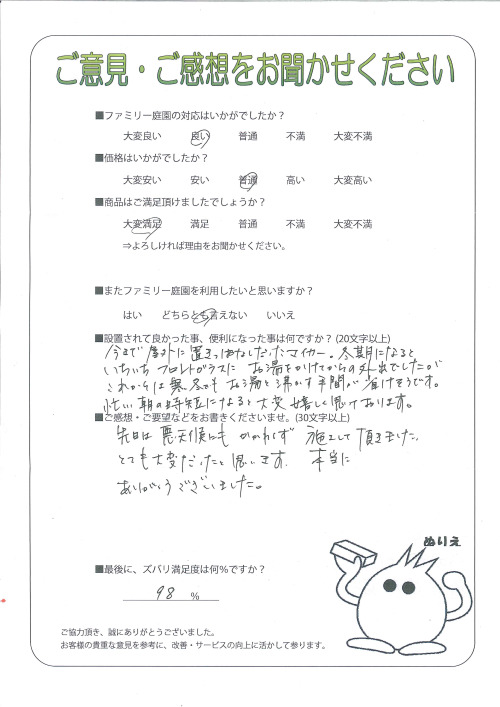 ご意見・ご感想をお聞かせください
■ファミリー庭園の対応はいかがでしたか？
大変良い 良い 普通 不満 大変不満
■価格はいかがでしたか？
大変安い 安い 普通 高い 大変高い
■商品はご満足頂けましたでしょうか？
大変満足 満足 普通 不満 大変不満
⇒よろしければ理由をお聞かせください。
■またファミリー庭園を利用したいと思いますか？
はい どちらとも言えない いいえ
■設置されて良かった事、便利になった事は何ですか？(20文字以上)
今まで屋外に置きっぱなしだったマイカー。冬期になると
いちいちフロントガラスにお湯をかけてからの外出でしたが
これからは寒冬でもお湯を沸かす手間が省けそうです。
忙しい朝の時短になると大変嬉しく思っております。
■ご感想・ご要望などをお書きくださいませ。(30文字以上)
先日は悪天候にもかかわらず施工して頂きました。
とても大変だったと思います。本当に
ありがとうございました。
ぬりえ
■最後に、ズバリ満足度は何％ですか？
98 %
ご協力頂き、誠にありがとうございました。
お客様の貴重な意見を参考に、改善・サービスの向上に活かして参ります。